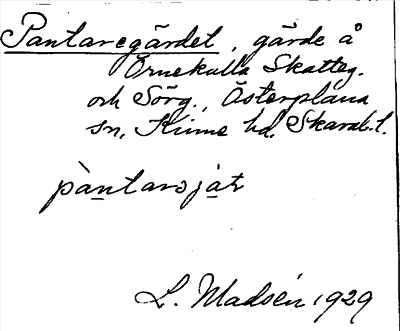 Pantaregärdet, gärde å
Örnekulla Skatteg.
och Sörg., Österplana
sn, Kinne hd, Skarab.l.
pàntarəjat
L. Madsén 1929